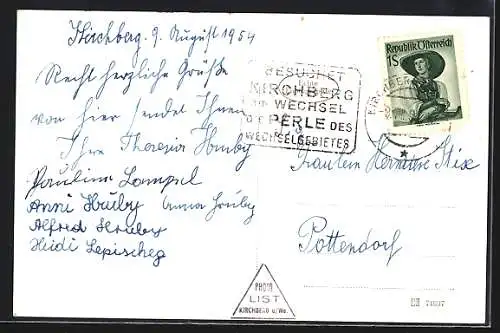 Kirchberg. 9. August 1954
Recht herzliche Grüße
von hier sendet Ihnen
Ihre Theresia Hruby
Pauline Lampel
Anni Hruby Anna Hruby
Alfred Hruby
Heidi Lepischeg
BESUCHET
KIRCHBERG
AM WECHSEL
DIE PERLE DES
WECHSELGEBIETES
Republik Österreich
1S
Fräulein Hermine Stix
Pottendorf
PHOTO
LIST
KIRCHBERG a/We.